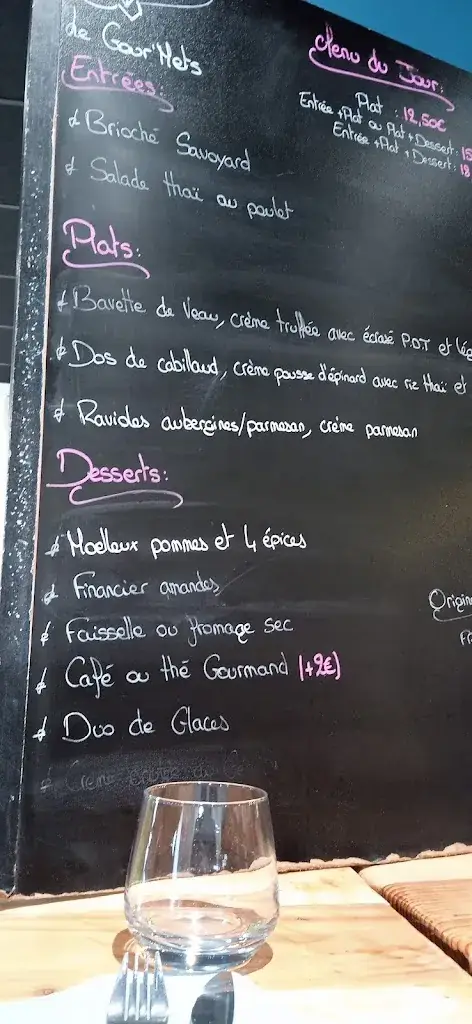 de Gour'Mets
Menu du Jour:
Plat : 12,50€
Entrée + Plat ou Plat + Dessert : 15
Entrée + Plat + Dessert : 18
Entrées:
Brioché Savoyard
Salade thaï au poulet
Plats:
Bavette de Veau, crème truffée avec écrasé P.D.T et lég
Dos de cabillaud, crème pousse d'épinard avec riz thaï et
Ravioles aubergines/parmesan, crème parmesan
Desserts:
Moelleux pommes et 4 épices
Financier amandes
Faisselle ou fromage sec
Café ou thé Gourmand (+2€)
Duo de Glaces
Crème
Origine
Fr